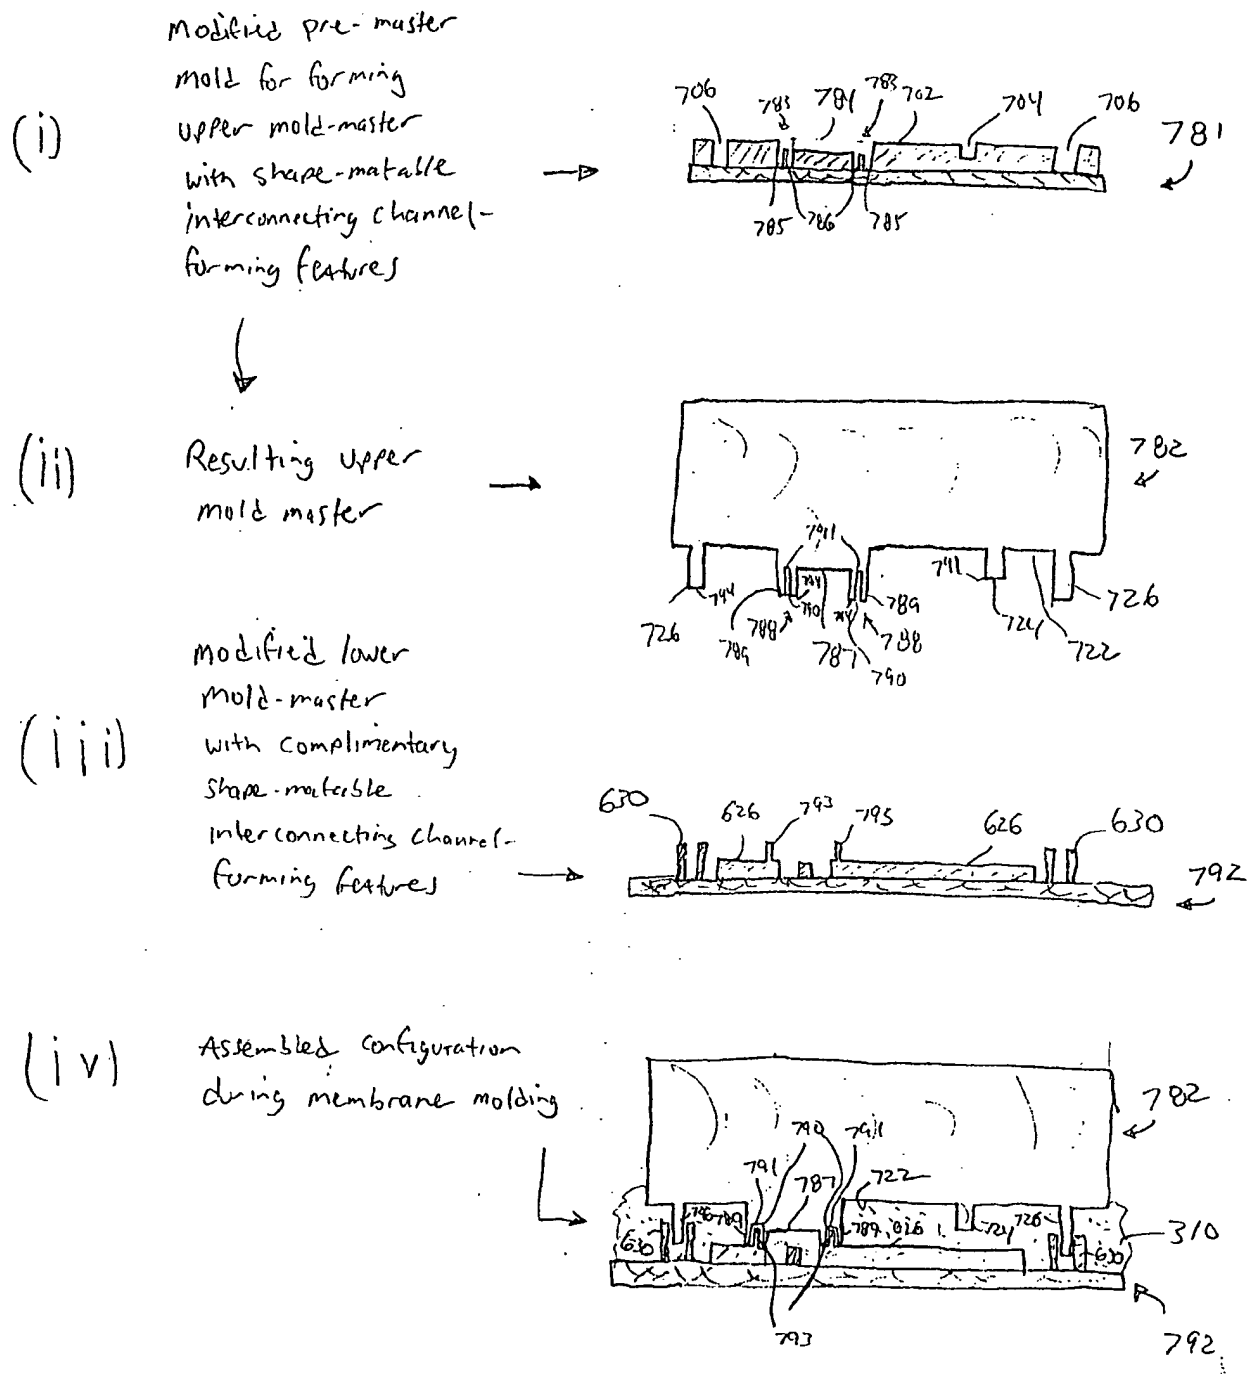 (i)
Modified pre-master
mold for forming
upper mold-master
with shape-matable
interconnecting channel-
forming features
706 783 784 783 702 704 706
781
785 786 785
(ii)
Resulting upper
mold master
782
791
744 794 790 794 789 741
726 789 788 787 790 788 724 722 726
(iii)
modified lower
mold-master
with complimentary
shape-matable
interconnecting channel-
forming features
630 626 793 795 626 630
792
(iv)
Assembled configuration
during membrane molding
782
790 791
791 787 722
630 789 789 626 724 726 630 310
793
792